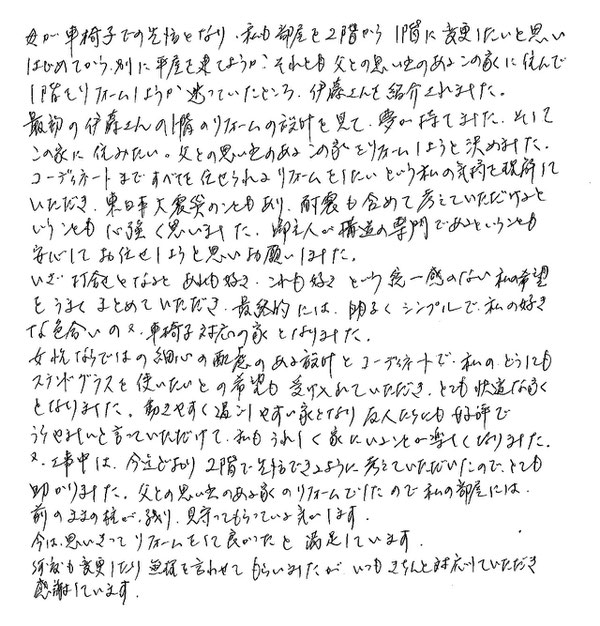 母が車椅子での生活となり、私も部屋を2階から1階に変更したいと思い
はじめてから、別に平屋を建てようか?それとも父との思い出のあるこの家に住んで
1階をリフォームしようか迷っていたところ、伊藤さんを紹介されました。
最初の伊藤さんの1階のリフォームの設計を見て、夢が持てました。そして
この家に住みたい。父との思い出のあるこの家をリフォームしようと決めました。
コーディネートまですべてを任せられるリフォームをしたいという私の気持を理解して
いただき、東日本大震災のこともあり、耐震も含めて考えていただけると
いうことも心強く思いました。御主人が構造の専門であるということも
安心してお任せしようと思いお願いしました。
いざ打合せとなるとあれも好き、これも好きという統一感のない私の希望
をうまくまとめていただき、最終的には、明るくシンプルで、私の好き
な色合いの又、車椅子対応の家となりました。
女性ならではの細心の配慮のある設計とコーディネートで、私の、どうしても
ステンドグラスを使いたいとの希望も受け入れていただき、とても快適な家
となりました。動きやすく過ごしやすい家となり友人たちにも好評で
うらやましいと言っていただけて、私もうれしく家にいることが楽しくなりました。
又、工事中は、今までどおり2階で生活できるように考えていただいたので、とても
助かりました。父との思い出のある家のリフォームでしたので私の部屋には、
前のままの柱が、残り、見守ってもらっている気がします。
今は、思いきってリフォームをして良かったと満足しています。
何度も変更したり無理を言わせてもらいましたが、いつもきちんと対応していただき
感謝しています。